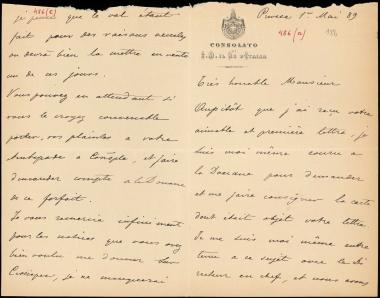 Pirée 1er Mai 89
486(a)
186
CONSOLATO
Très honorable Monsieur
Aussitôt que j'ai reçu votre
aimable et première lettre, je
suis moi même couru a
la Douane pour demander
et me faire consigner la carte
dont était objet votre lettre
Je me suis moi même entre
tenu a ce sujet avec le Di
recteur en chef, et nous avons
486(c)
je pense que le vol étant
fait pour des raisons
on devra bien la mettre en vente
un de ces jours.
Vous pouvez en attendant si
vous le croyez convenable
porter vos plaintes a votre
Ambassade a Consple, et faire
demander compte a la Douane
de ce forfait.
Je vous remercie infiniment
pour les notices que vous avez
bien voulu me donner sur
je ne manquerai